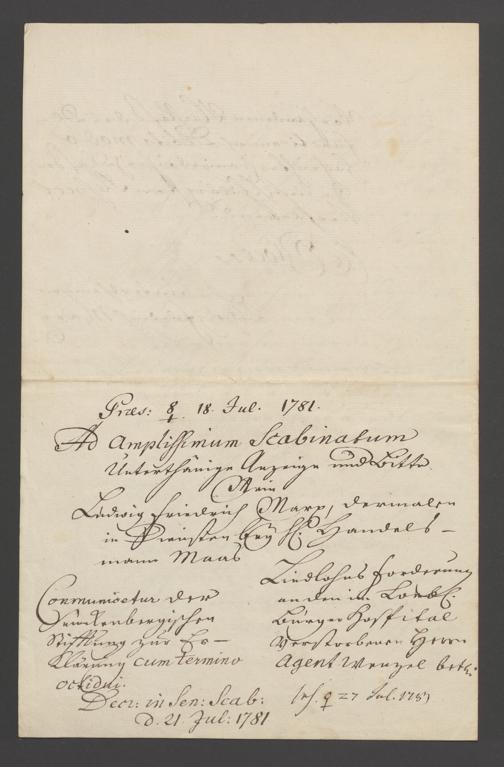 Præs: 18. Jul. 1781.
Ad Amplissimum Scabinatum
Unterthänige Anzeige und Bitte
Mein
Ludwig Friedrich Marx, dermalen
in Diensten bey H. Handels-
mann Maas
Liedlohns forderung
an den im Lomb.
Bürger Hospital
Verstorbenen Herrn
Agent Wenzel betr:
Communicetur der
Senckenbergischen
Stifftung zur Er-
klärung cum termino
octidui.
Decr: in Sen: Scab:
d. 21. Jul: 1781
27 Jul. 1781